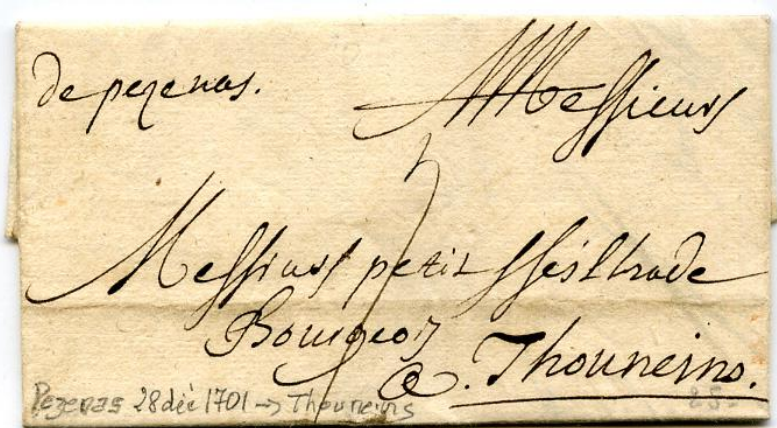 de pezenas.
Messieurs
Messieurs petit
Bourgeois
a. Thouneins.
Pezenas 28 déc 1701 -> Thouneins